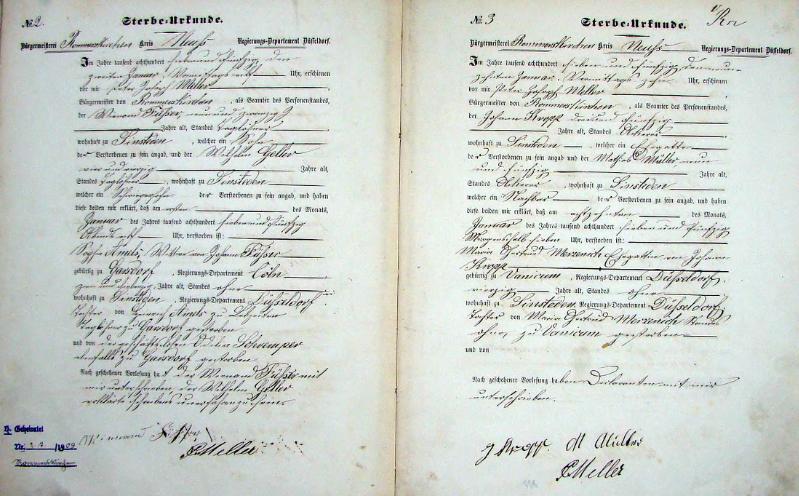 № 2.
Sterbe-Urkunde.
Bürgermeisterei Rommerskirchen Kreis Neuß Regierungs-Departement Düsseldorf.
Im Jahre tausend achthundert sieben und fünfzig den
zweiten Januar Vormittags acht Uhr, erschienen
vor mir Peter Joseph Meller
Bürgermeister von Rommerskirchen, als Beamter des Personenstandes,
der Wienand Füßer, neun und zwanzig
Jahre alt, Standes Taglöhner
wohnhaft zu Sinsteden, welcher ein Sohn
der Verstorbenen zu sein angab, und der Wilhelm Geller
vier und vierzig Jahre alt,
Standes Taglöhner, wohnhaft zu Sinsteden
welcher ein Schwiegersohn der Verstorbenen zu sein angab, und haben
diese beiden mir erklärt, daß am ersten des Monats,
Januar des Jahres tausend achthundert sieben und fünfzig
Abends acht Uhr, verstorben ist:
Sophia Amls, Wittwe von Johann Füßer
gebürtig zu Gansdorf, Regierungs-Departement Cöln
Jahre alt, Standes ohne
wohnhaft zu Sinsteden, Regierungs-Departement Düsseldorf
Tochter von Amls zu Lebzeiten
Taglöhner zu Gansdorf gestorben
und von der geschäftslosen Schremper
ebenfalls zu Gansdorf gestorben.
Nach geschehener Vorlesung hat der Wienand Füßer mit
mir unterschrieben, der Wilhelm Geller
erklärte schreibens unerfahren zu sein.
Wienand Füßer
PMeller
Geheiratet
Nr.
Rommerskirchen
№ 3
Sterbe-Urkunde.
Bürgermeisterei Rommerskirchen Kreis Neuß Regierungs-Departement Düsseldorf.
Im Jahre tausend achthundert sieben und fünfzig den neun
zehnten Januar Vormittags zehn Uhr, erschienen
vor mir Peter Joseph Meller
Bürgermeister von Rommerskirchen, als Beamter des Personenstandes,
der Johann Kropp drei und fünfzig
Jahre alt, Standes Ackerer
wohnhaft zu Sinsteden, welcher ein Ehegatte
der Verstorbenen zu sein angab, und der Mathias Müller neun
und fünfzig Jahre alt,
Standes Ackerer, wohnhaft zu Sinsteden
welcher ein Nachbar der Verstorbenen zu sein angab, und haben
diese beiden mir erklärt, daß am achtzehnten des Monats,
Januar des Jahres tausend achthundert sieben und fünfzig
Morgens halb sieben Uhr, verstorben ist:
Maria Gertrud Merzenich Ehegattin von Johann
Kropp
gebürtig zu Vanicum, Regierungs-Departement Düsseldorf
vierzig Jahre alt, Standes ohne
wohnhaft zu Sinsteden, Regierungs-Departement Düsseldorf
Tochter von Maria Gertrud Merzenich Standes
ohne, zu Vanicum gestorben
und von
Nach geschehener Vorlesung haben Declaranten mit mir
unterschrieben.
J Kropp M Müller
PMeller